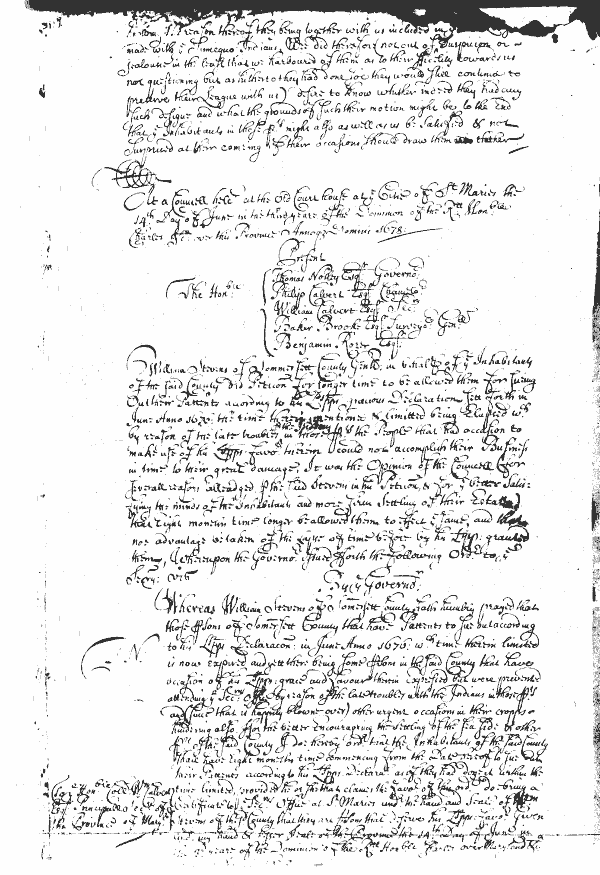 thereof they being together with us included in
made with Indians, Wee did therefore not out of suspicion or
jealousie in the least that we harboured of them as to their fidelity towards us
not questioning but as hitherto they had done soe they would still continue to
preserve their League with us) desire to know whether indeed they had any
such designe and what the grounds of such their motion might bee, to the end
that ye Inhabitants in those pts might also as well as us be satisfied & not
surprized at their coming if their occasions should draw them
Att a Councell held at the Old Court house at ye Citie of St Maries the
14th Day of June in the third yeare of the Dominion of the Rt Honble
Charles &c over this Province Annoqe Domini 1678
Present
The Honble
Thomas Notley Esqr Governor
Philip Calvert Esqr Chancelor
William Calvert Esqr Secr
Baker Brooke Esqr Surveyor Genll
Benjamin Rozer Esqr
William Stevens of Sommersett County Gentl in behalfe of ye Inhabitants
of the said County did Petition for longer time to be allowed them for suing
out their Pattents according to his Lspps gracious Declaration sett forth in
June Anno 1676 the time therein mentioned & limitted being elapsed wch
by reason of the late troubles in those pts the People that had occasion to
make use of his Lspps favor therein could not accomplish their Business
in time to their great damage, It was the Opinion of the Councell for
severall reasons alleadged p the said Stevens in his Petition, & for ye better satis-
fying the minds of the Inhabitants and more firm settling of their Estates
that Eight moneths time longer be allowed them to effect ye same, and that
noe advantage be taken of the lapse of time before by his Lspp granted
them, Whereupon the Governor issued forth the following Ordr to ye
Secry: Vizt
By ye Governor
Whereas William Stevens of Somersett County hath humbly prayed that
those psons of Somersett County that have Pattents to sue out according
to his Lspps Declaracon in June Anno 1676 ye time therein limitted
is now expired and yett there being some psons in the said County that have
occasion of his Lspps grace and favour therein expressed but were prevented
attending ye Secrs Office by reason of the late troubles with the Indians in those pts
and since that is happily blowne over) other urgent occasion in their crops
hindering also. For the better encouraging the settling of the sea side & other
pts of the said County I doe hereby ordr that the Inhabitants of the said County
shall have Eight moneths time commencing from the date hereof to sue out
their Pattents according to his Lspps Declaracon as if they had done it within the
time limited, provided he or shee that claims the favor of this ordr do bring a
Certificate to ye Secrs Office at St Maries under the hand and Seale of
Stevens of this County that they are psons that deserves his Lspps favor Given
under my hand & lesser Seale of the Province the 14th day of June in
yeare of the Dominion of the Rt Honble over Maryland &c
To ye Honble Coll Wm Calvert
Esqr Principall Secr of
the Province of Maryld